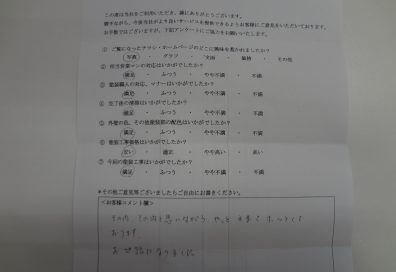 この度は当社をご利用いただき、誠にありがとうございます。
勝手ながら、今後当社がより良いサービスを提供できるようお客様にご意見をいただいております。
お手数ではございますが、下記アンケートにご協力をお願いいたします。
① ご覧になったチラシ・ホームページのどこに興味を惹かれましたか?
写真 ・ グラフ ・ 文面 ・ 価格 ・ その他
② 担当営業マンの対応はいかがでしたか?
満足 ・ ふつう ・ やや不満 ・ 不満
③ 塗装職人の対応、マナーはいかがでしたか?
満足 ・ ふつう ・ やや不満 ・ 不満
④ 完了後の清掃はいかがでしたか?
満足 ・ ふつう ・ やや不満 ・ 不満
⑤ 外壁の色、その他塗装部の配色はいかがでしたか?
満足 ・ ふつう ・ やや不満 ・ 不満
⑥ 塗装工事価格はいかがでしたか?
安い ・ 適正 ・ やや高い ・ 高い
⑦ 今回の塗装工事はいかがでしたか?
満足 ・ ふつう ・ やや不満 ・ 不満
*その他ご意見等ございましたらご自由にお書きください。
<お客様コメント欄>
その内、その内と思いながら やっと出来て ホッとして
おります。
お世話になりました